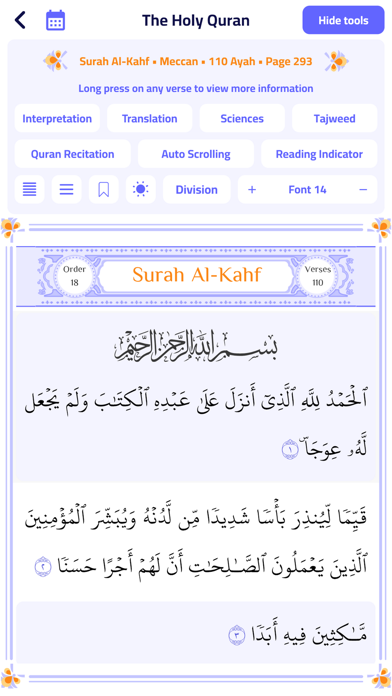 The Holy Quran
Hide tools
Surah Al-Kahf • Meccan • 110 Ayah • Page 293
Long press on any verse to view more information
Interpretation Translation Sciences Tajweed
Quran Recitation Auto Scrolling Reading Indicator
Division + Font 14 −
Order
18
Surah Al-Kahf
Verses
110
بِسْمِ ٱللَّهِ ٱلرَّحْمَٰنِ ٱلرَّحِيمِ
ٱلْحَمْدُ لِلَّهِ ٱلَّذِىٓ أَنزَلَ عَلَىٰ عَبْدِهِ ٱلْكِتَٰبَ وَلَمْ يَجْعَل
لَّهُۥ عِوَجَاۜ ١
قَيِّمًا لِّيُنذِرَ بَأْسًا شَدِيدًا مِّن لَّدُنْهُ وَيُبَشِّرَ ٱلْمُؤْمِنِينَ
ٱلَّذِينَ يَعْمَلُونَ ٱلصَّٰلِحَٰتِ أَنَّ لَهُمْ أَجْرًا حَسَنًا ٢
مَّٰكِثِينَ فِيهِ أَبَدًا ٣